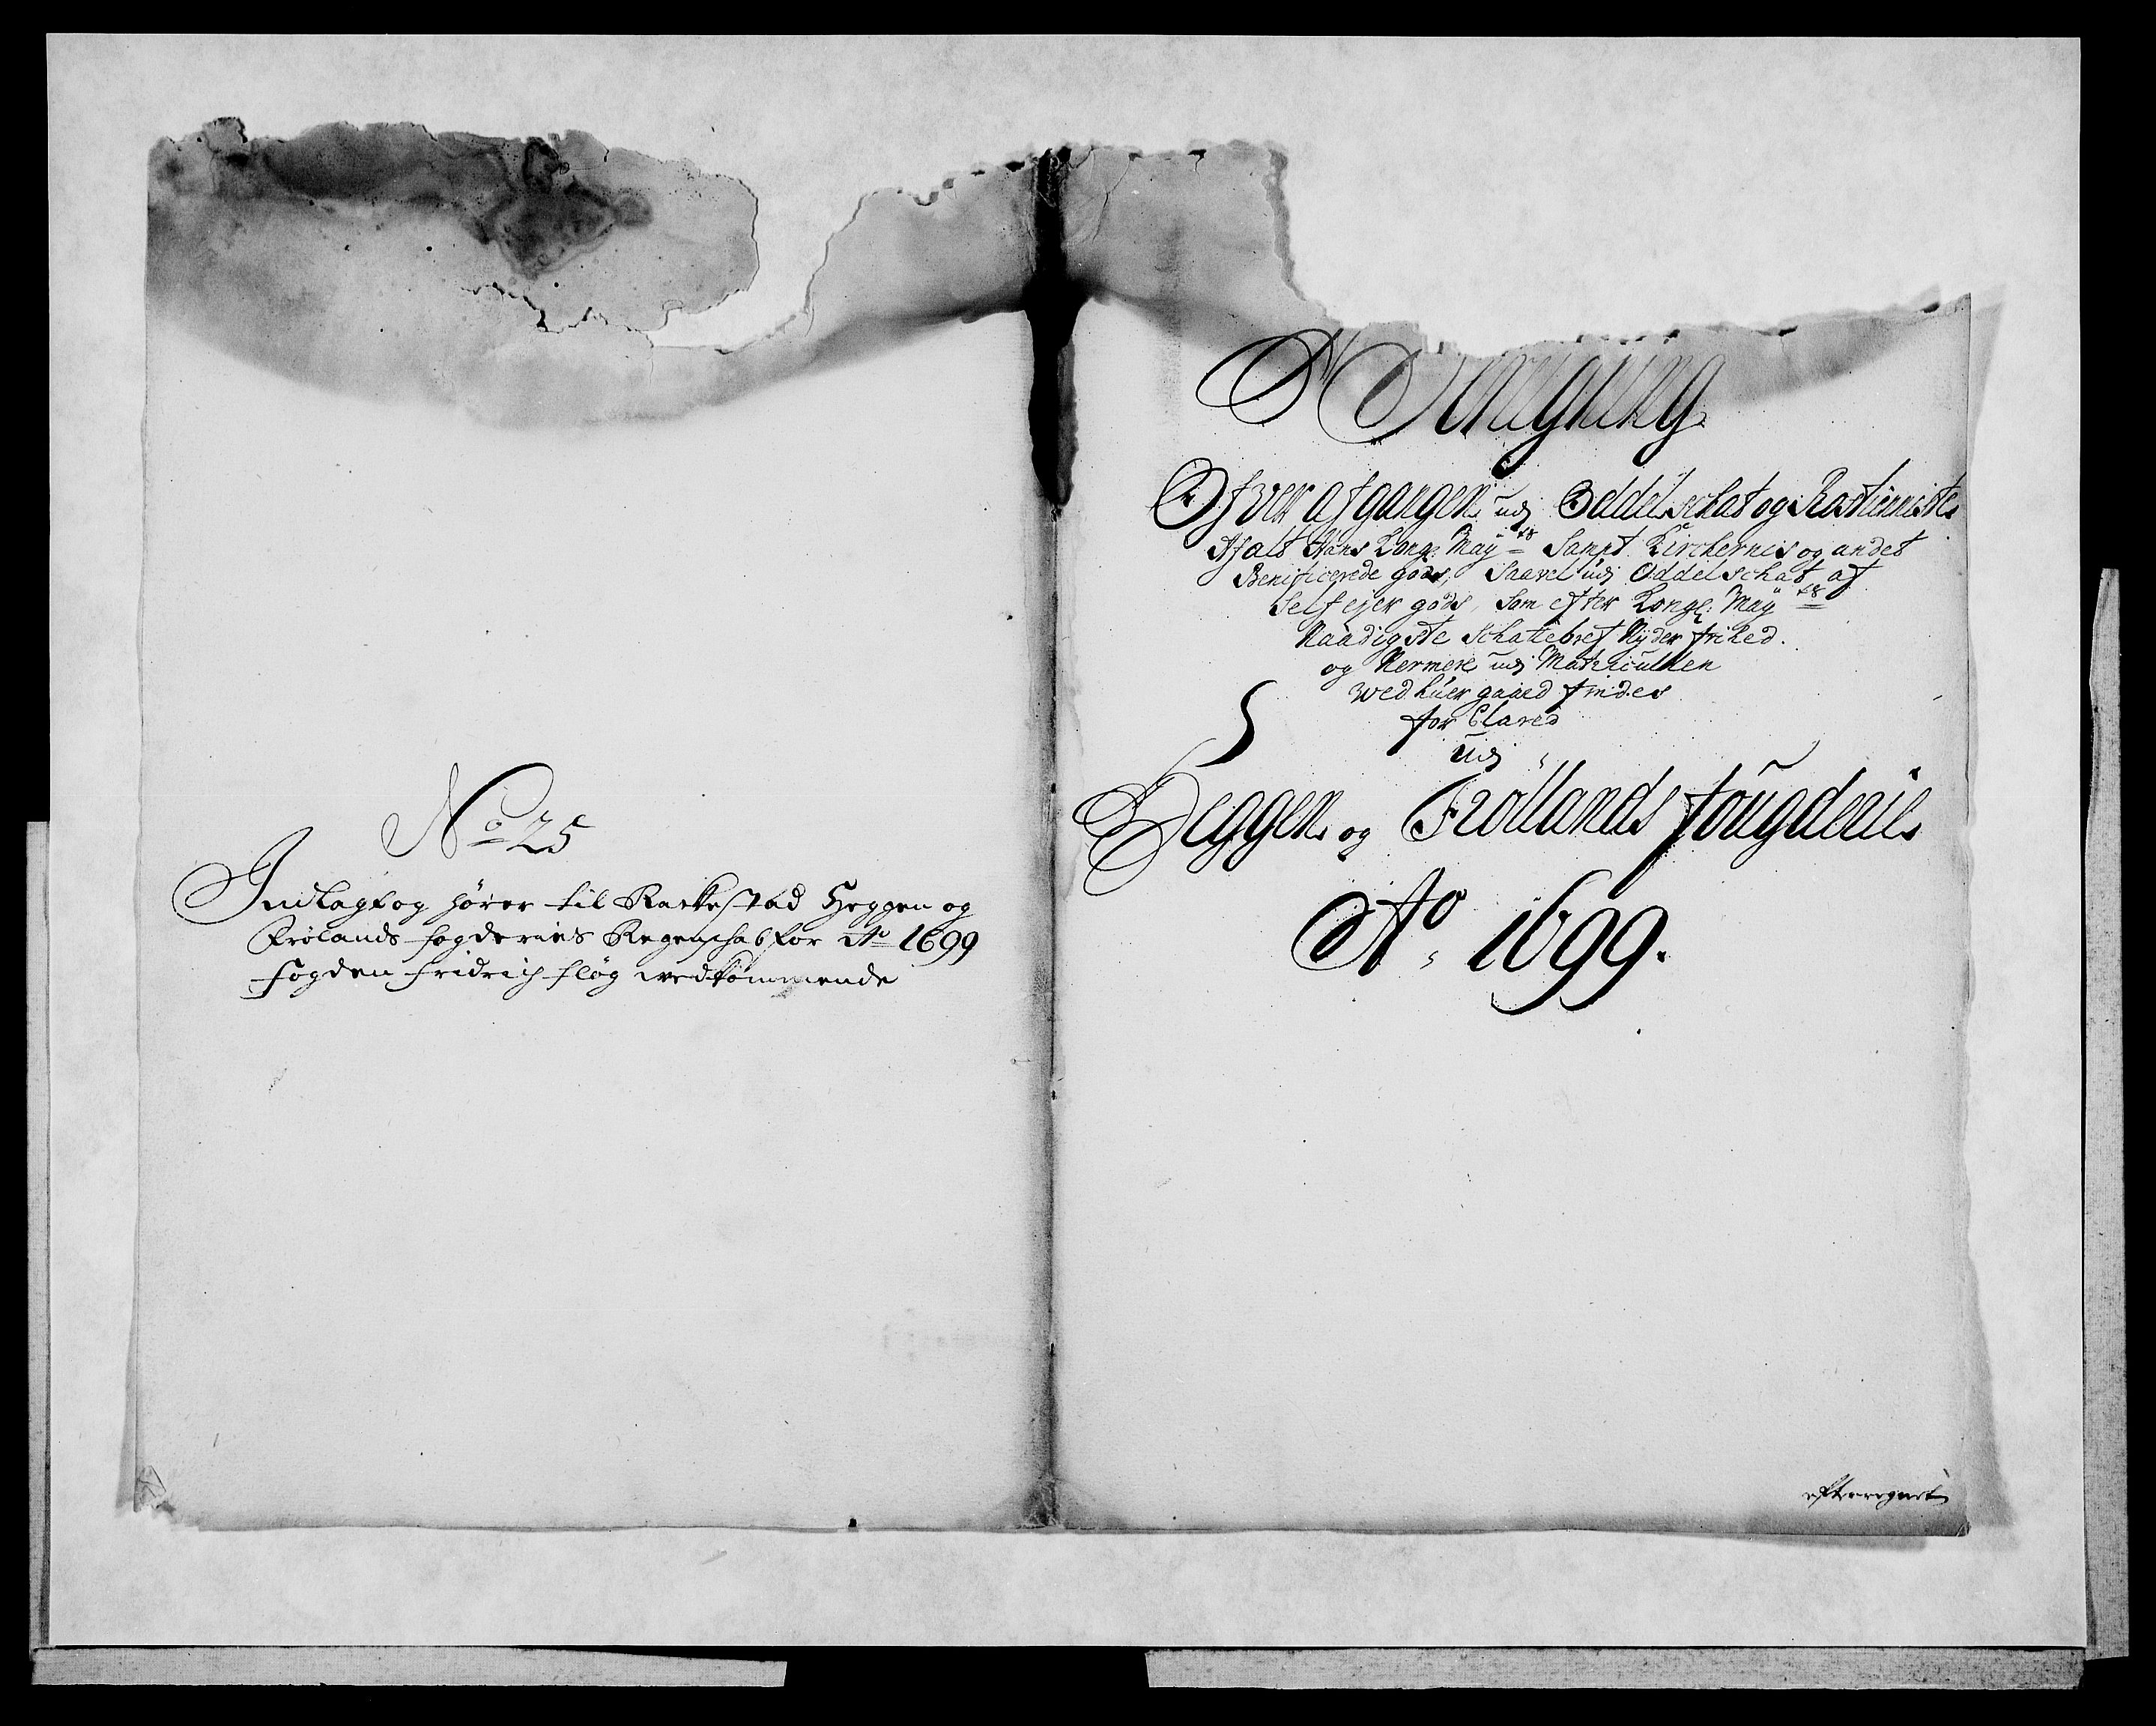 No 25
Indlagt og hörer til Rackestad Heggen og
Frölands fogderies Regenschab for Ao 1699
fogden fridrich flög vedkommende
Ofver afgangen udj Oddelschat og Rostienniste
Hans Kong: Maytz Sampt Kirchernis og andet
Benificerede gods, Saavel udj Oddelschat af
Self ejer gods, som efter Kongl: Maytz
Naadigste Schattebref Nyder frihed.
og Nermere udj Matriculen
ved huer gaard findes
for Clared
udj
Heggen og Fröllands fougderie
Ao. 1699.